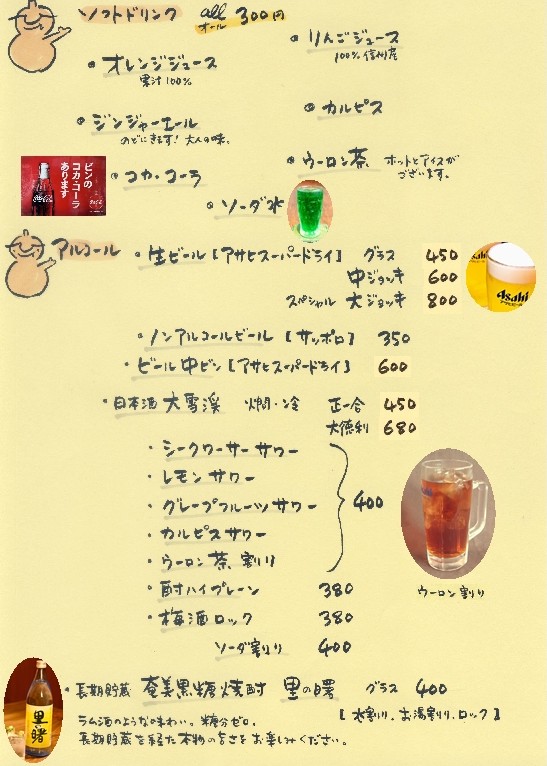 ソフトドリンク all オール 300円
・りんごジュース
100% 信州産
・オレンジジュース
果汁100%
・カルピス
・ジンジャーエール
のどにきます! 大人の味。
・ウーロン茶 ホットとアイスが
ございます。
ビンの
コカ・コーラ
あります
・コカ・コーラ
・ソーダ水
アルコール
・生ビール[アサヒスーパードライ] グラス 450
中ジョッキ 600
スペシャル 大ジョッキ 800
Asahi
・ノンアルコールビール [サッポロ] 350
・ビール中ビン[アサヒスーパードライ] 600
・日本酒 大雪渓 燗・冷 正一合 450
大徳利 680
・シークワーサーサワー
・レモンサワー
・グレープフルーツサワー
・カルピスサワー
・ウーロン茶割り
400
・酎ハイプレーン 380
ウーロン割り
・梅酒ロック 380
ソーダ割り 400
・長期貯蔵 奄美黒糖焼酎 里の曙 グラス 400
[水割り、お湯割り、ロック]
ラム酒のような味わい。糖分ゼロ。
長期貯蔵を経た本物の旨さをお楽しみください。
里の曙